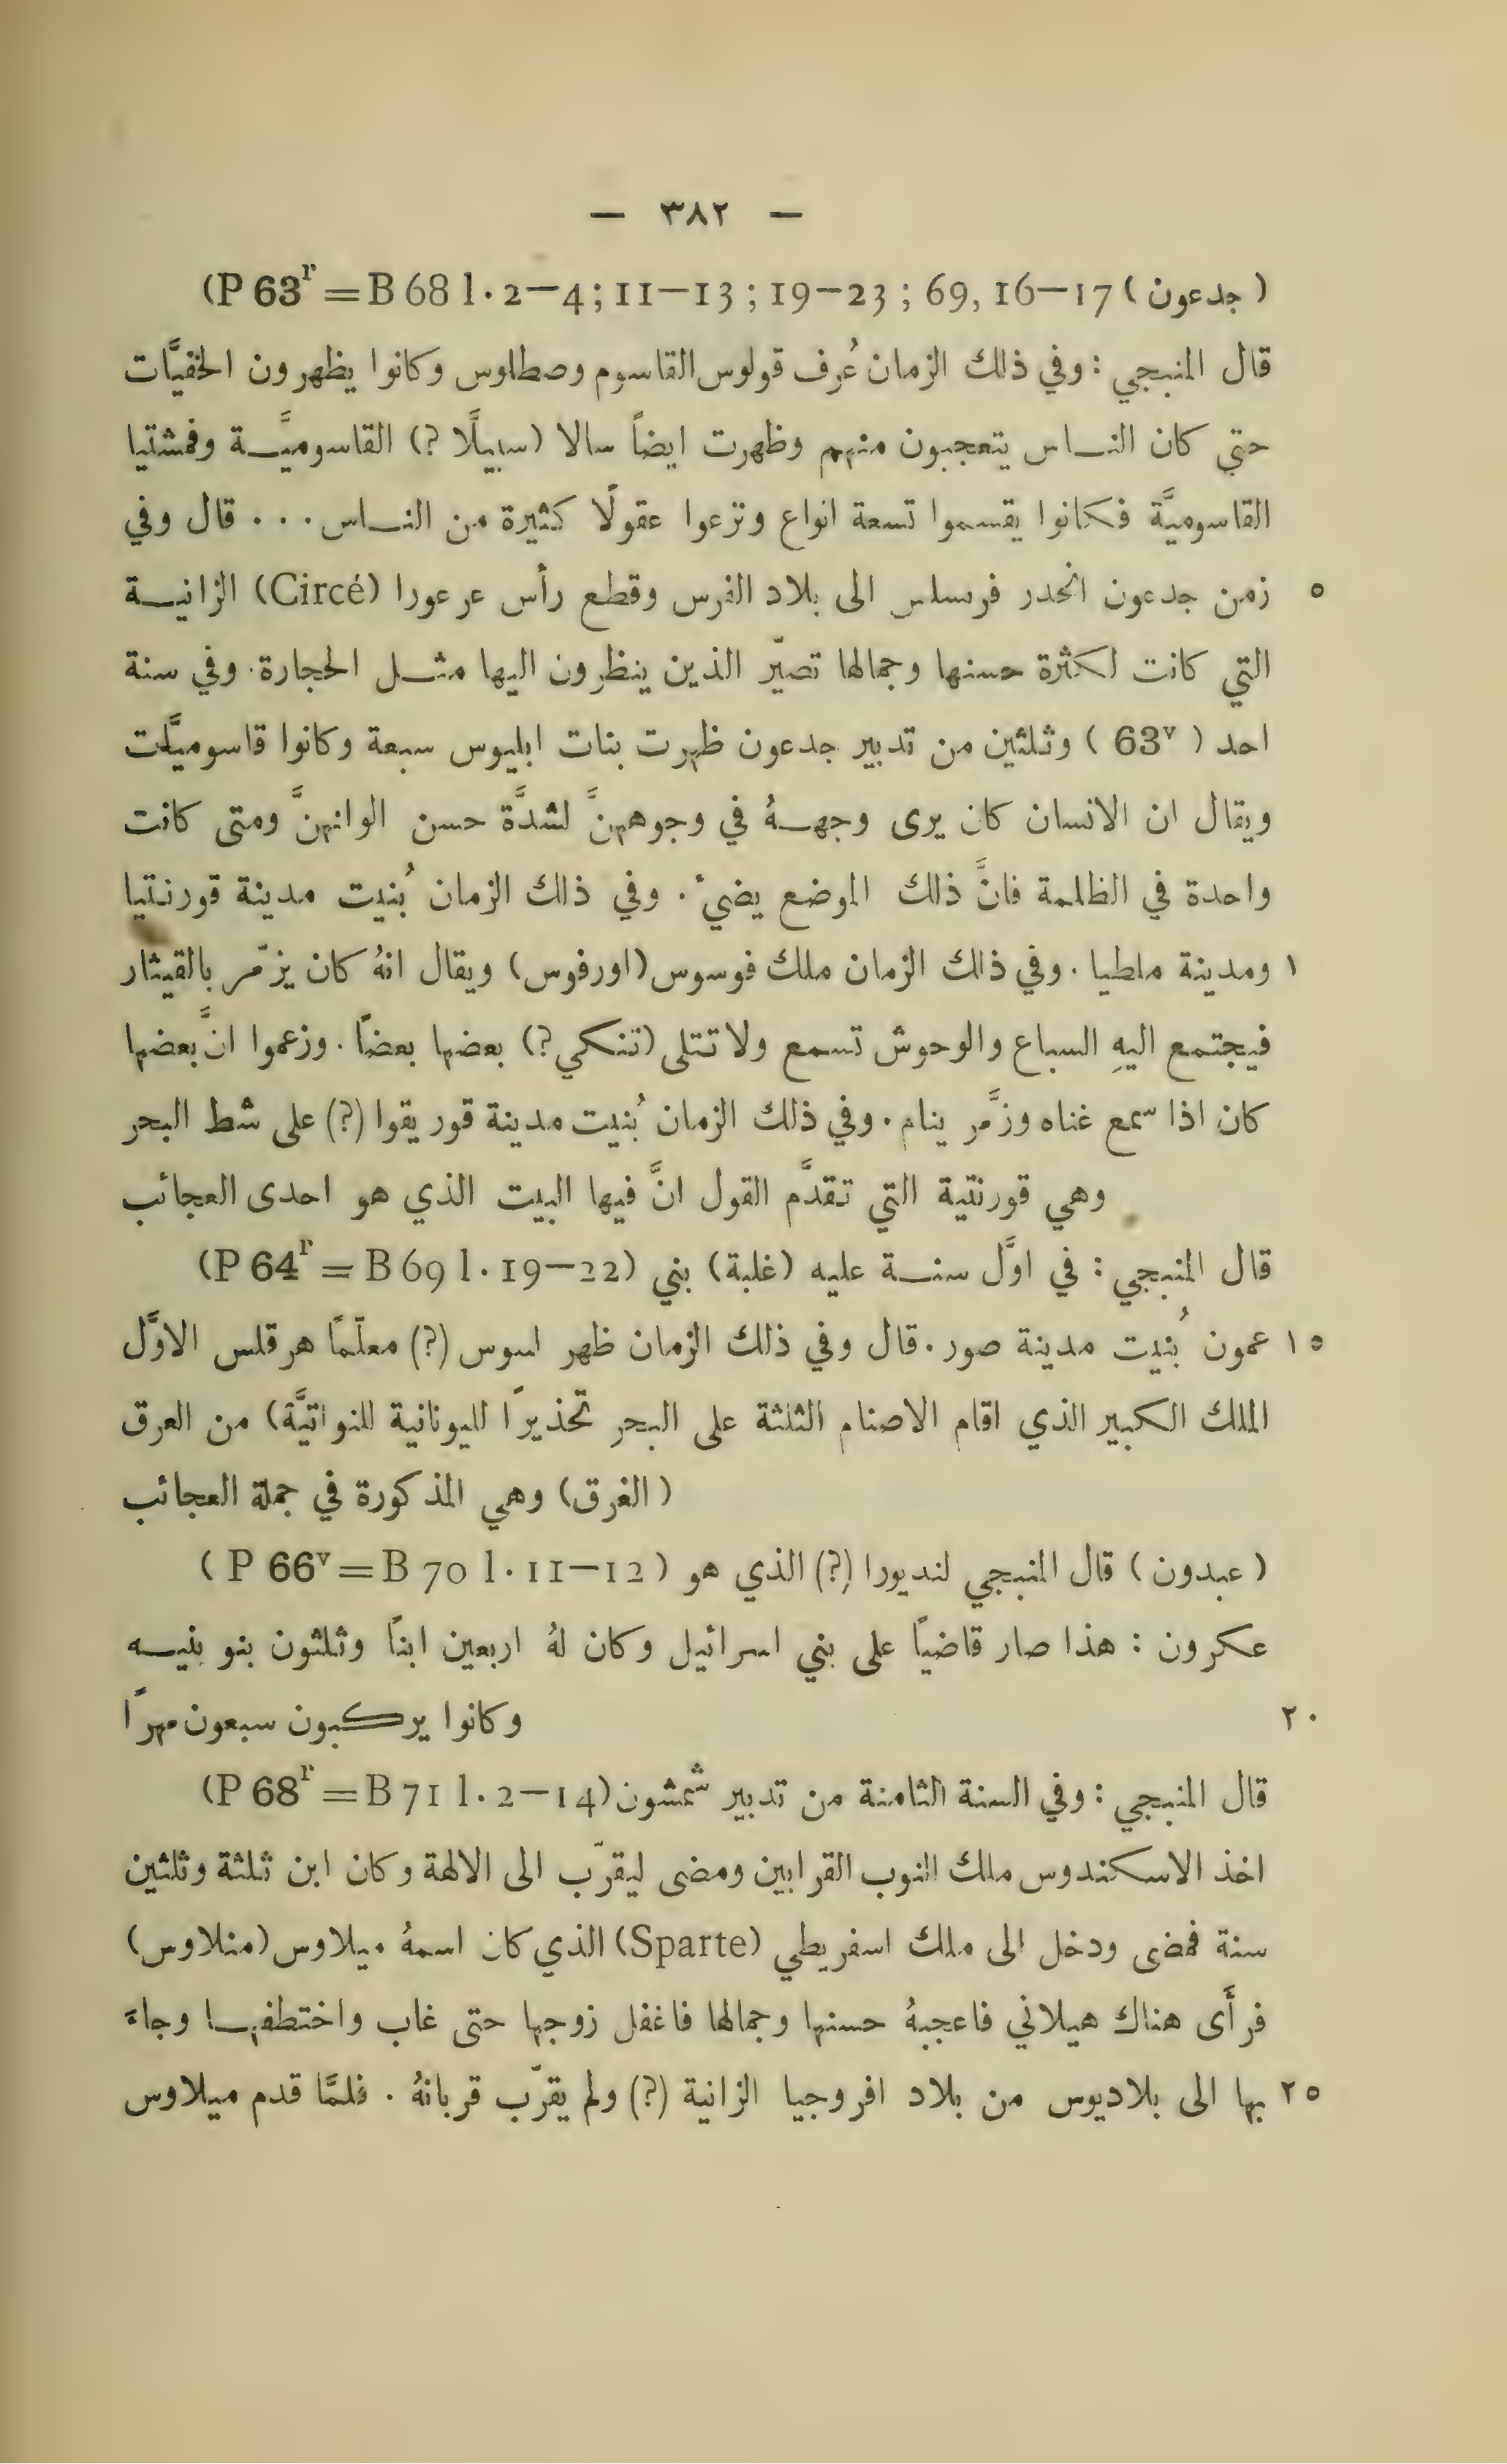 — ٣٨٢ —
( جدعون ) (P 63r = B 68 l. 2—4; 11—13; 19—23; 69, 16—17
قال المنبجي : وفي ذلك الزمان عُرف قولوس القاسوم وصطاوس وكانوا يظهرون الخفيَّات
حتى كان النـاس يتعجبون منهم وظهرت ايضاً سالا (سبيلَّا ?) القاسوميَّـة وفمشتيا
القاسوميَّة فكانوا يقسموا تسعة انواع ونزعوا عقولًا كثيرة من النـاس . . . قال وفي
٥ زمن جدعون انحدر فرسلس الى بلاد الفرس وقطع رأس عرعورا (Circé) الزانيـة
التي كانت لكثرة حسنها وجمالها تصيّر الذين ينظرون اليها مثـل الحجارة . وفي سنة
احد ( 63v ) وثلثين من تدبير جدعون ظهرت بنات ابليوس سبعة وكانوا قاسوميَّات
ويقال ان الانسان كان يرى وجهـهُ في وجوههنَّ لشدَّة حسن الوانهنَّ ومتى كانت
واحدة في الظلمة فانَّ ذلك الموضع يضيءُ . وفي ذلك الزمان بُنيت مدينة قورنتيا
١ ومدينة ملطيا . وفي ذلك الزمان ملك فوسوس (اورفوس) ويقال انهُ كان يزمّر بالقيثار
فيجتمع اليهِ السباع والوحوش تسمع ولا تتلى (تنكي ?) بعضها بعضاً . وزعموا انَّ بعضها
كان اذا سمع غناه وزَّمر ينام . وفي ذلك الزمان بُنيت مدينة قوريقوا (?) على شط البحر
وهي قورنتية التي تقدَّم القول انَّ فيها البيت الذي هو احدى العجائب
قال المنبجي : في اوَّل سنـة عليه (غلبة) بني (P 64r = B 69 l. 19—22)
١٥ عمون بُنيت مدينة صور . قال وفي ذلك الزمان ظهر اسوس (?) معلّمًا هرقلس الاوَّل
الملك الكبير الذي اقام الاصنام الثلثة على البحر تحذيرًا لليونانية للنواتيَّة) من العرق
( الغرق) وهي المذكورة في جملة العجائب
( عبدون ) قال المنبجي لنديورا (?) الذي هو ( P 66v = B 70 l. 11—12 )
عكرون : هذا صار قاضياً على بني اسرائيل وكان لهُ اربعين ابناً وثلثون بنو بنيـه
٢٠ وكانوا يركبون سبعون مهرًا
قال المنبجي : وفي السنة الثامنة من تدبير شمشون (P 68r = B 71 l. 2—14)
اخذ الاسكندوس ملك النوب القرابين ومضى ليقرّب الى الالهة وكان ابن ثلثة وثلثين
سنة فمضى ودخل الى ملك اسفريطي (Sparte) الذي كان اسمهُ ميلاوس (منلاوس)
فرأَى هناك هيلاني فاعجبهُ حسنها وجمالها فاغفل زوجها حتى غاب واختطفهـا وجاءَ
٢٥ بها الى بلاديوس من بلاد افروجيا الزانية (?) ولم يقرّب قربانهُ . فلمَّا قدم ميلاوس